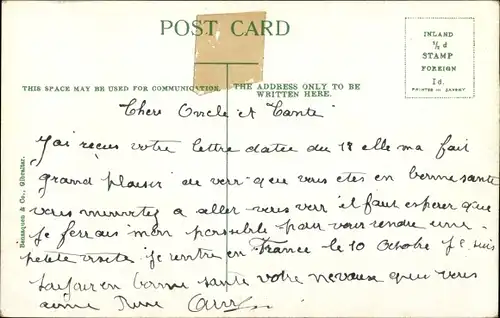 POST CARD
INLAND
½ d
STAMP
FOREIGN
1d.
PRINTED IN SAXONY
THIS SPACE MAY BE USED FOR COMMUNICATION.
THE ADDRESS ONLY TO BE
WRITTEN HERE.
Benzaquen & Co., Gibraltar.
Chers Oncle et Tante
J'ai reçus votre lettre datée du 18 elle ma fait
grand plaisir de verr que vous etes en bonne sante
vous a aller vous verr il faut esperer que
je ferrais mon possibile pour vour rendre une
petite visite je rentre en France le 10 Octobre je suis
toujour en bonne sante votre neveux que vous
aime